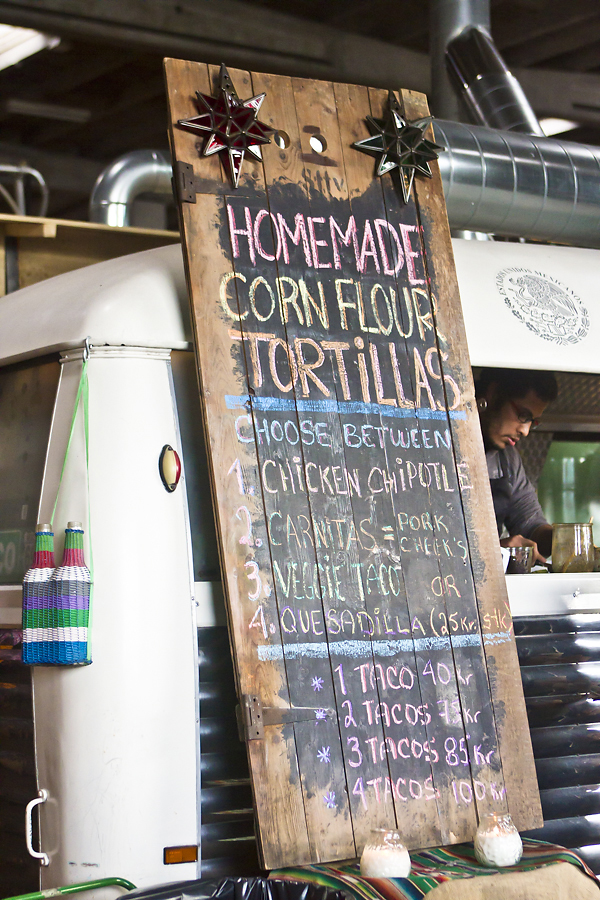 HOMEMADE
CORN FLOUR
TORTILLAS
CHOOSE BETWEEN
1. CHICKEN CHIPOTLE
2. CARNITAS = PORK CHEEK'S
3. VEGGIE TACO OR
4. QUESADILLA (25Kr. stk)
1 TACO 40 Kr
2 TACOS 75 Kr
3 TACOS 85 Kr
4 TACOS 100 Kr
ESTADOS UNIDOS MEXICANOS